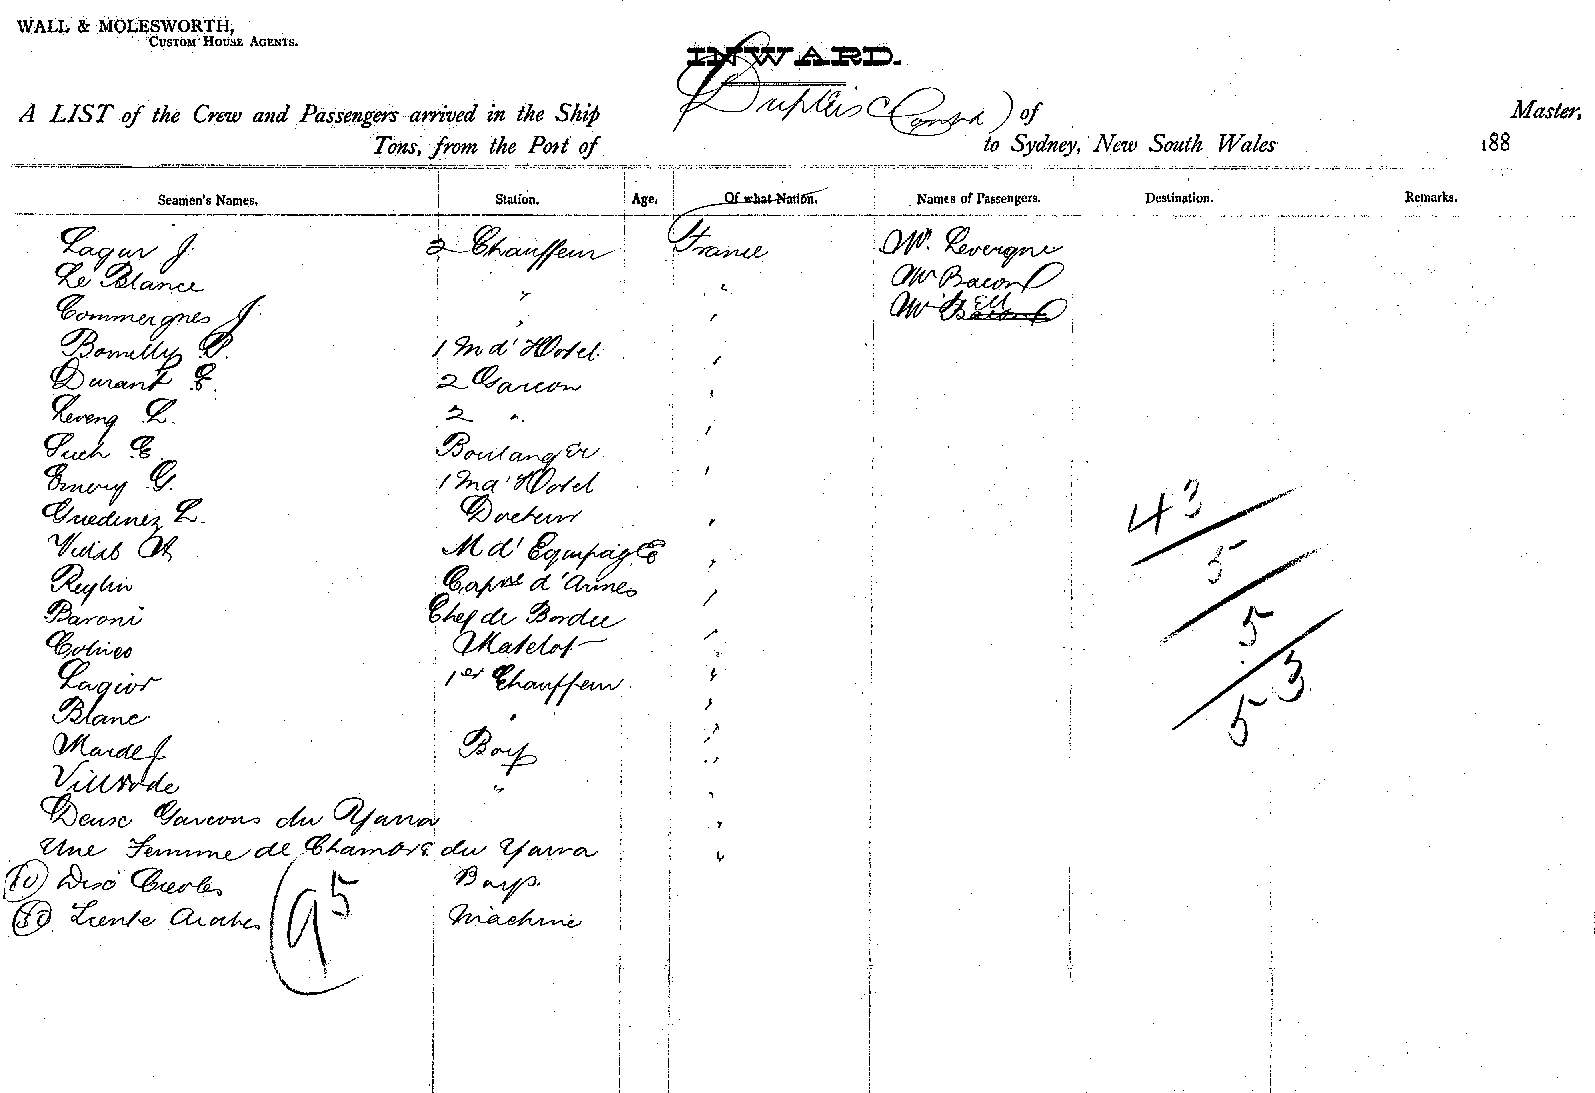 WALL & MOLESWORTH,
CUSTOM HOUSE AGENTS.
INWARD.
A LIST of the Crew and Passengers arrived in the Ship Dupleix (Contd) of Master,
Tons, from the Port of to Sydney, New South Wales 188
Seamen's Names. Station. Age. Of what Nation. Names of Passengers. Destination. Remarks.
J. 2 Chauffeur France Mr. Levergne
Le Blance " " Mr Bacon
Commergnes J. " " Mr Bell
Bomelly P. 1 M d' Hotel "
Durant E. 2 Garcon "
Leveng L. 2 " "
Such E. Boulanger "
Emery G. 1 M d' Hotel "
Guedinez L. Docteur "
Vidal A M d' Equipage "
Capral d'Armes "
Baroni Chef de Bordee "
Matelot "
Lagior 1er Chauffeur "
Blanc " "
Marde J Boys "
" "
Deux Garcons du Yarra "
Une Femme de Chambre du Yarra "
(10) Dix Creoles Boys.
(30) Trente Arabes Machine
95
43
5
5
53